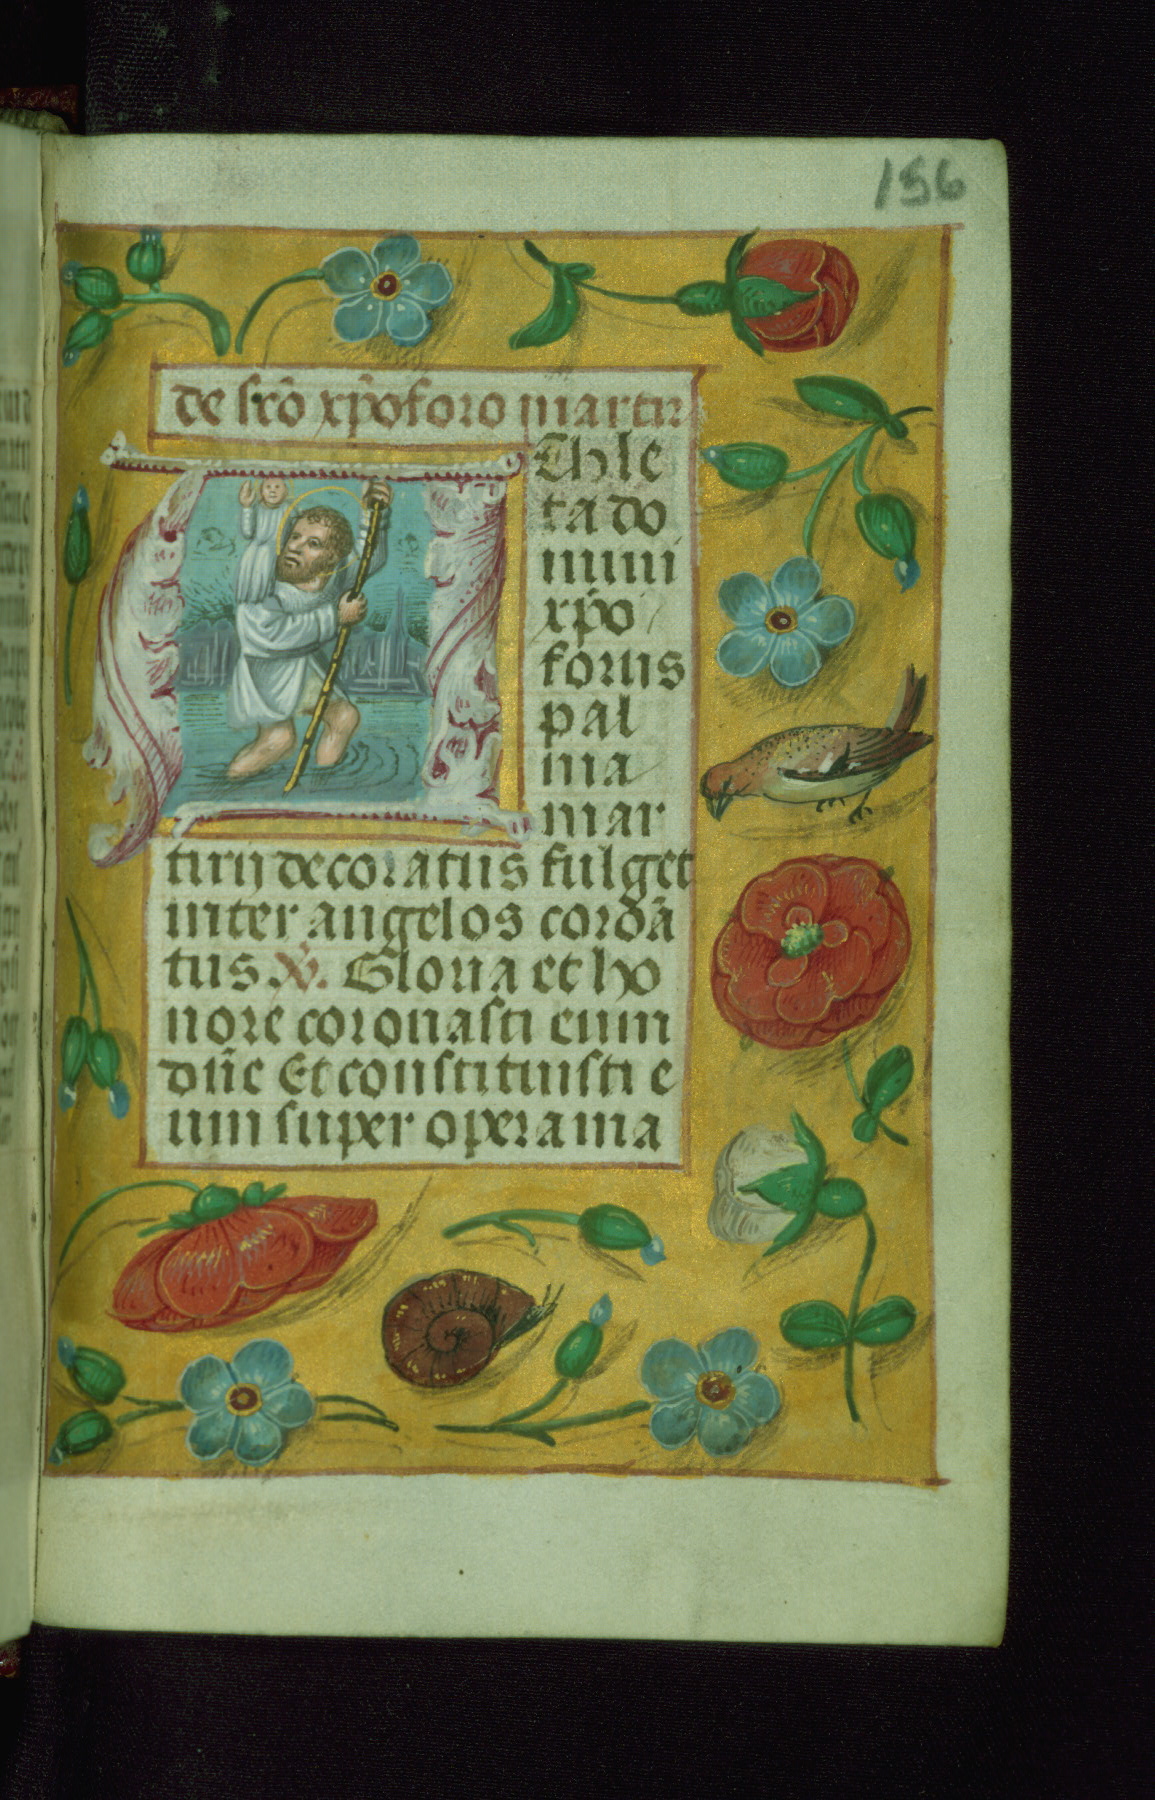 156
de scō xp̄oforo martir
Athle
ta do
mini
xp̄o
forus
pal
ma
mar
tirij decoratus fulget
inter angelos cordā
tus. V̄. Gloria et ho
nore coronasti eum
dn̄e Et constituisti e
um super opera ma